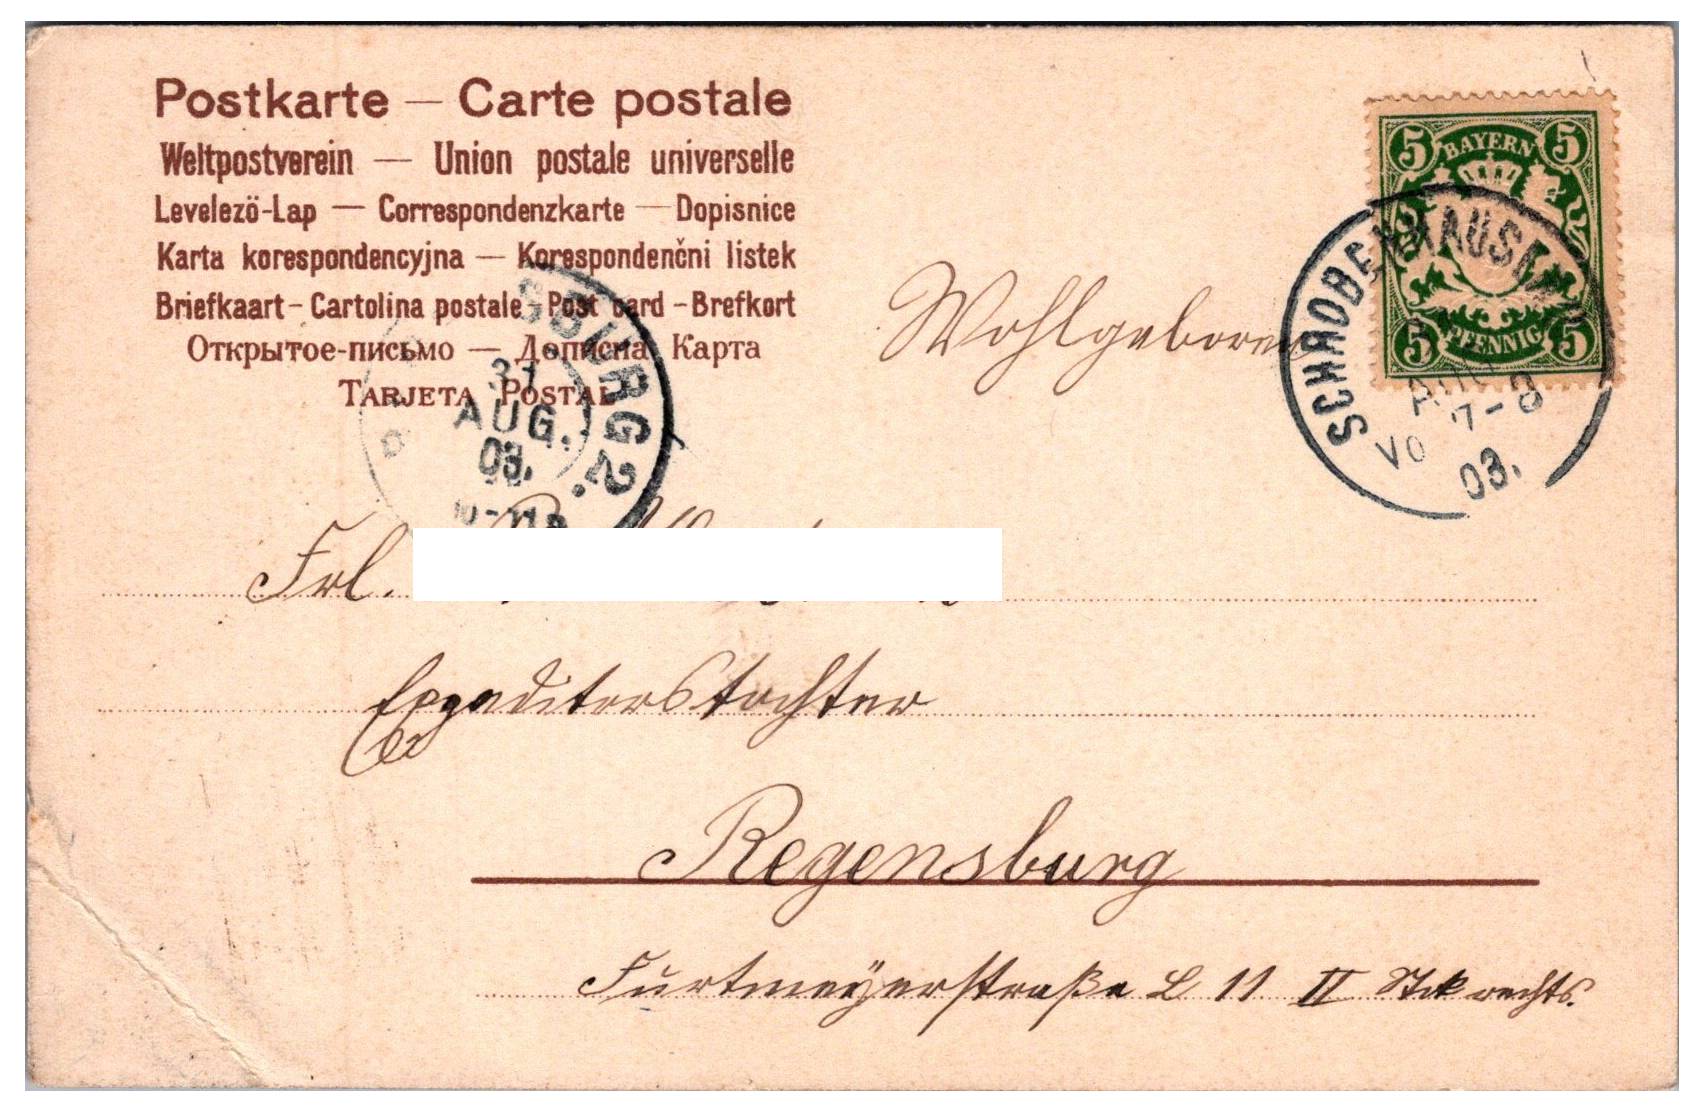 Postkarte — Carte postale
Weltpostverein — Union postale universelle
Levelezö-Lap — Correspondenzkarte — Dopisnice
Karta korespondencyjna — Korespondenčni listek
Briefkaart - Cartolina postale - Post card - Brefkort
Открытое-письмо — Дописна Карта
TARJETA POSTAL
BAYERN
5 5
5 PFENNIG 5
SCHROBENHAUSEN
AUG
VO 7-8
03.
SBURG 2.
31
AUG.
03.
Wohlgeboren
Frl.
Expeditorstochter
Regensburg
Furtmeÿerstraße L 11 II Stck rechts.